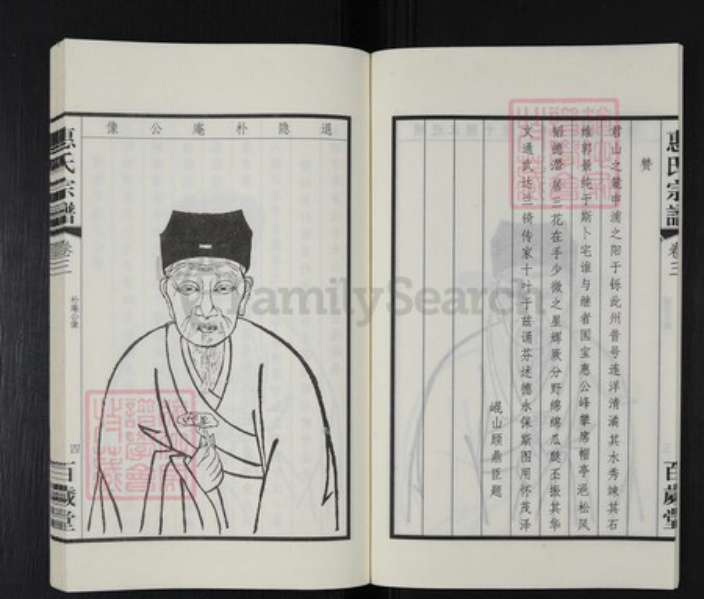 惠氏宗譜
卷三
贊
君山之麓申浦之阳于铄此州昔号连洋清漪其水秀竦其石
维郭景纯于斯卜宅谁与继者国宝惠公峰攀席帽亭挹松风
韬德潜居三花在手少微之星辉厥分野绵绵瓜瓞丕振其华
文通武达兰锜传家十叶于兹诵芬述德永保斯图用怀茂泽
崐山顾鼎臣题
百歲堂
退隐朴庵公像
惠氏宗譜
卷三
朴庵公像
四
百歲堂
FamilySearch